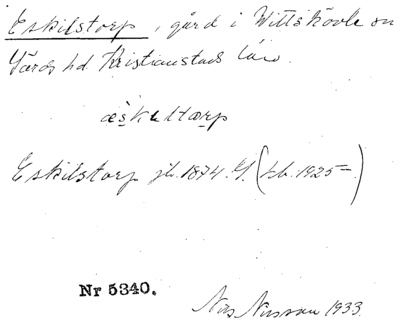 Eskilstorp, gård i Wittskövle sn
Gärds hd. Kristianstads län.
Eskilstorp jb. 1874. G. (hb. 1925 =)
Nr 5340.
Nils Nilsson 1933.